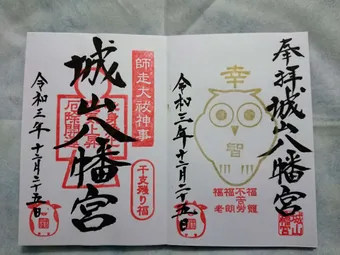 奉拝
城山八幡宮
幸
智
福福不福
老朗苦労籠
令和三年十二月二十五日
城山
八幡宮
師走大祓神事
城山八幡宮
干支残り福
令和三年十二月二十五日